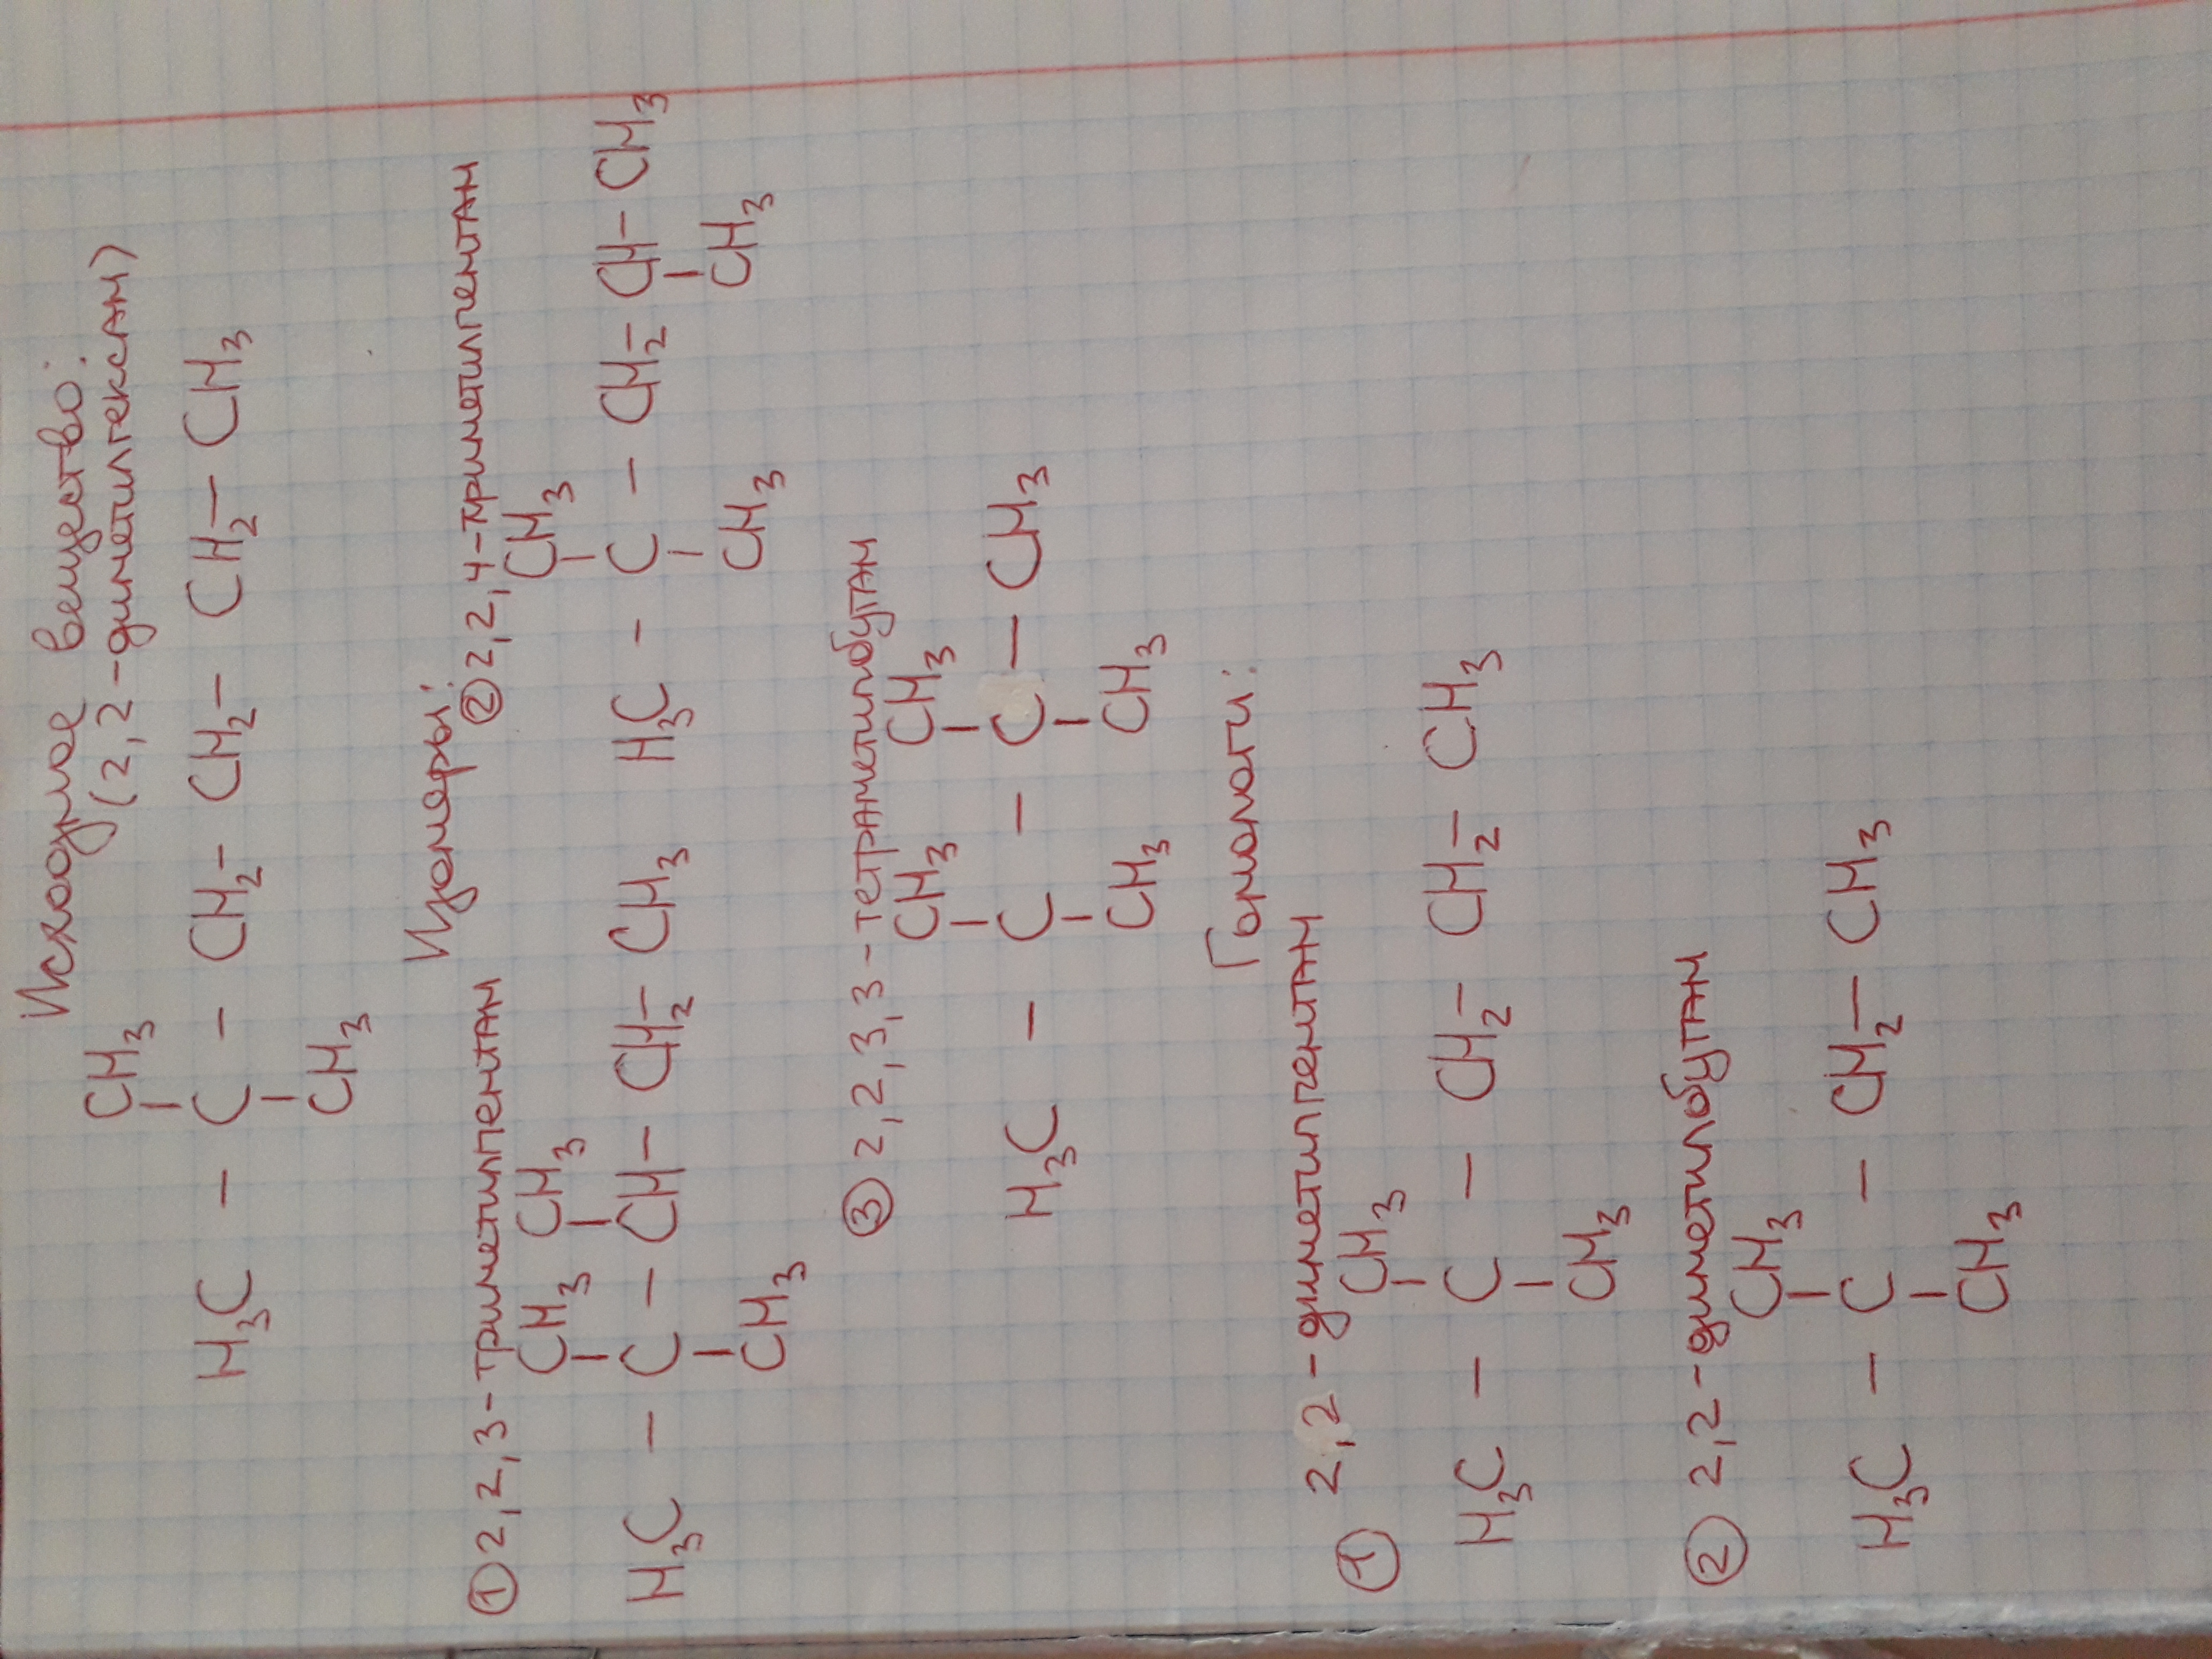 Исходное вещество:
(2,2-диметилгексан)
CH₃
H₃C - C - CH₂ - CH₂ - CH₂ - CH₃
CH₃
Изомеры:
① 2,2,3-триметилпентан
CH₃ CH₃
H₃C - C - CH - CH₂ - CH₃
CH₃
② 2,2,4-триметилпентан
CH₃
H₃C - C - CH₂ - CH - CH₃
CH₃ CH₃
③ 2,2,3,3-тетраметилбутан
CH₃ CH₃
H₃C - C - C - CH₃
CH₃ CH₃
Гомологи:
① 2,2-диметилпентан
CH₃
H₃C - C - CH₂ - CH₂ - CH₃
CH₃
② 2,2-диметилбутан
CH₃
H₃C - C - CH₂ - CH₃
CH₃